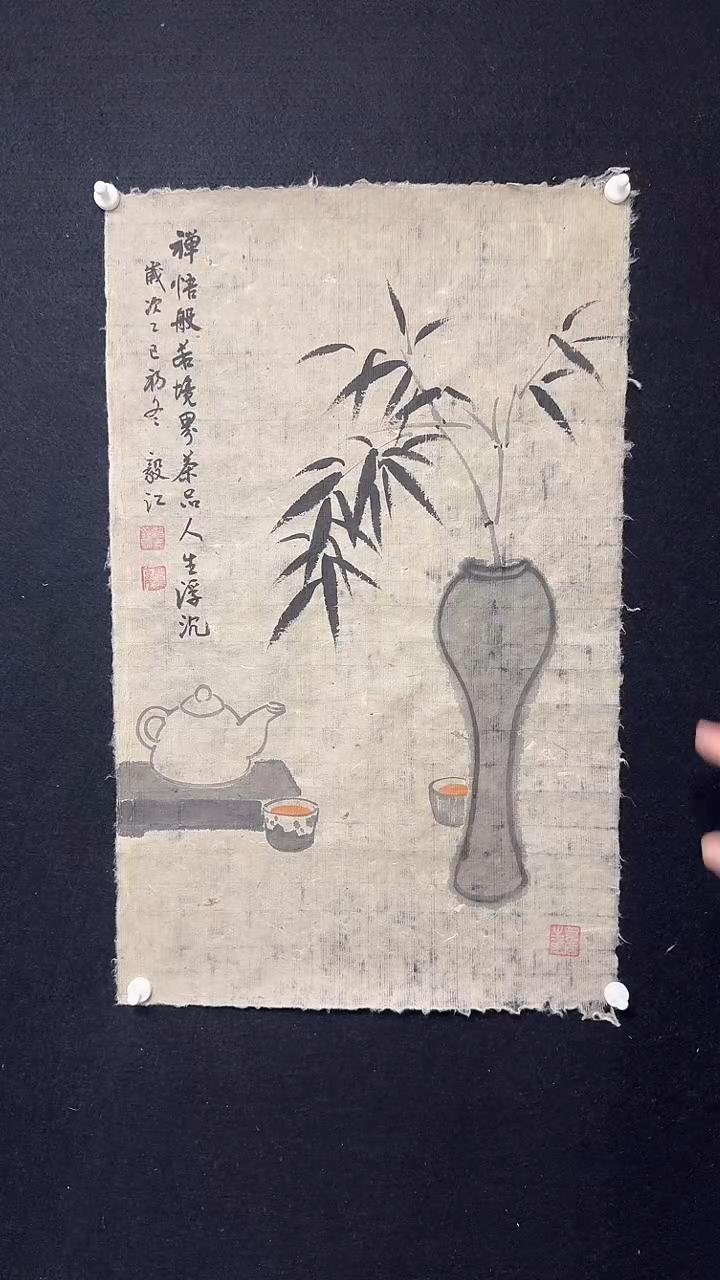 禅悟般若境界茶品人生浮沉
歲次乙巳初冬 毅江